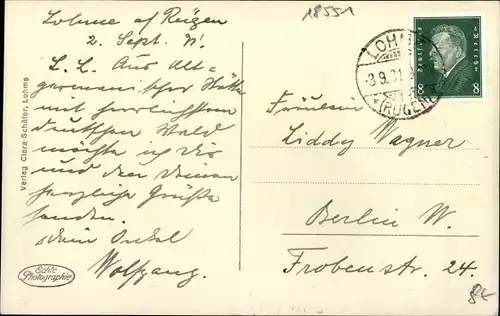 Lohme auf Rügen
2. Sept. 31.
L. L. Aus alt-
germanischer Stätte
mit herrlichstem
deutschen Wald
möchte ich Dir
und den Deinen
herzliche Grüße
senden.
Dein Onkel
Wolfgang.
18551
LOHME
-3.9.31
(RÜGEN)
Deutsches Reich
8 8
Fräulein
Liddy Wagner
Berlin W.
Frobenstr. 24.
8€
Verlag Clara Schäfer, Lohme
Echte
Photographie